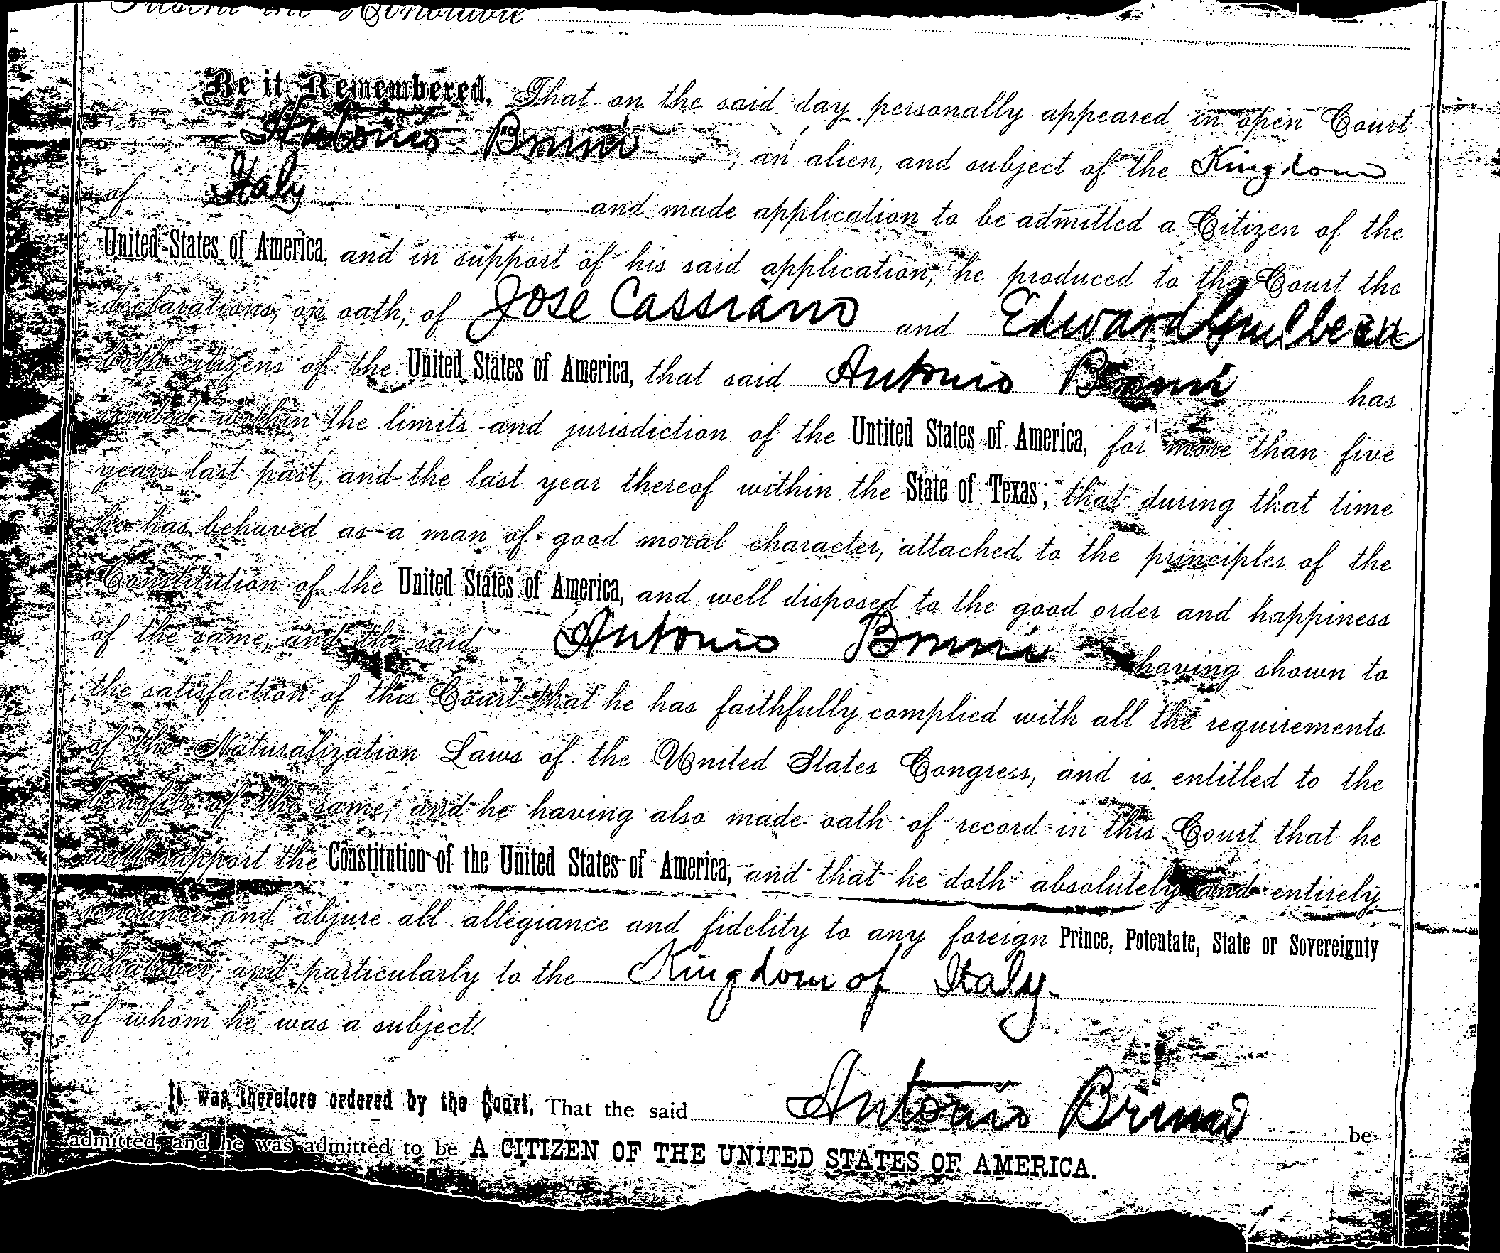 Present the Honorable
Be it Remembered, That on the said day personally appeared in open Court
Antonio Bruni, an alien, and subject of the Kingdom
of Italy and made application to be admitted a Citizen of the
United States of America, and in support of his said application, he produced to the Court the
declarations, on oath, of Jose Cassiano and Edward Guilbeau
both citizens of the United States of America, that said Antonio Bruni has
resided within the limits and jurisdiction of the Untited States of America, for more than five
years last past, and the last year thereof within the State of Texas; that during that time
he has behaved as a man of good moral character, attached to the principles of the
Constitution of the United States of America, and well disposed to the good order and happiness
of the same, and the said Antonio Bruni having shown to
the satisfaction of this Court that he has faithfully complied with all the requirements
of the Naturalization Laws of the United States Congress, and is entitled to the
benefits of the same; and he having also made oath of record in this Court that he
will support the Constitution of the United States of America, and that he doth absolutely and entirely
renounce and abjure all allegiance and fidelity to any foreign Prince, Potentate, State or Sovereignty
whatever, and particularly to the Kingdom of Italy.
of whom he was a subject.
It was therefore ordered by the Court, That the said Antonio Bruni be
admitted, and he was admitted to be A CITIZEN OF THE UNITED STATES OF AMERICA.